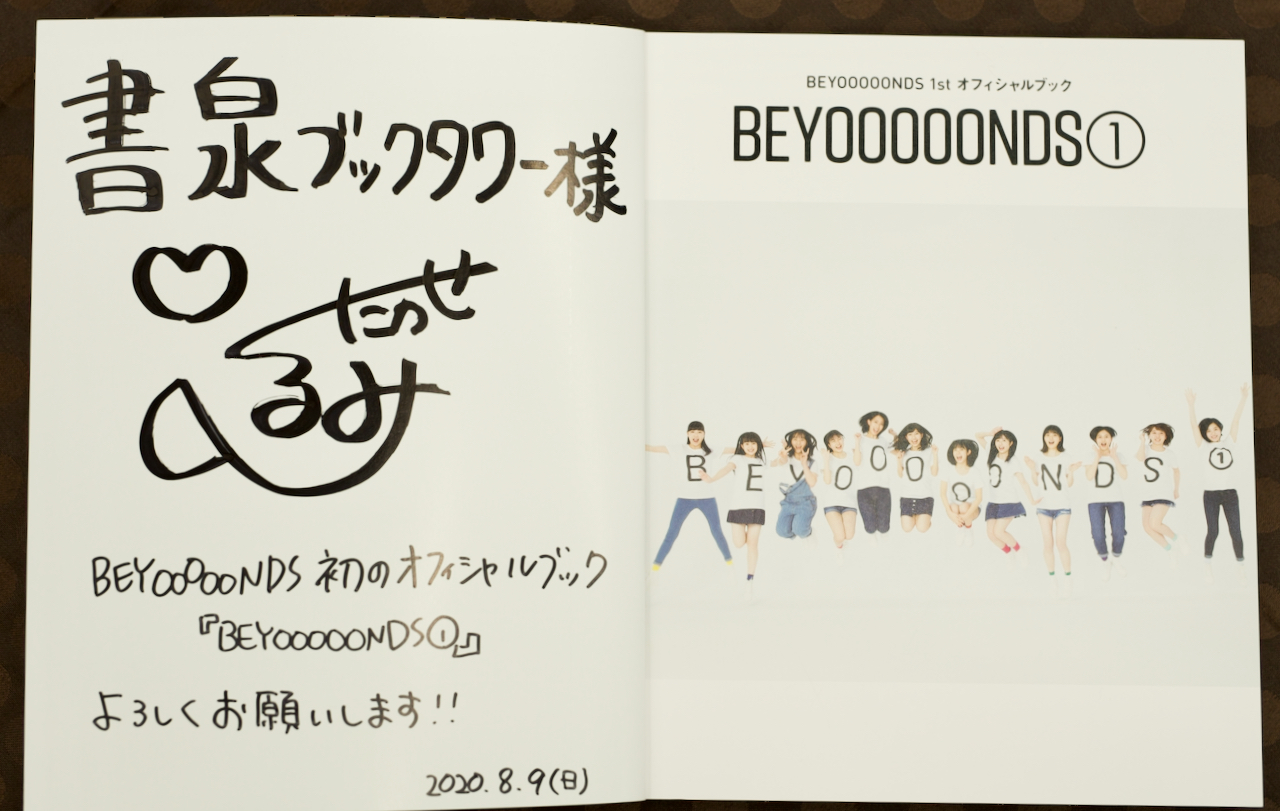 書泉ブックタワー様
たのせ
るみ
BEYOOOOONDS 初のオフィシャルブック
『BEYOOOOONDS①』
よろしくお願いします!!
2020.8.9(日)
BEYOOOOONDS 1st オフィシャルブック
BEYOOOOONDS①
B E Y O O O O O N D S ①